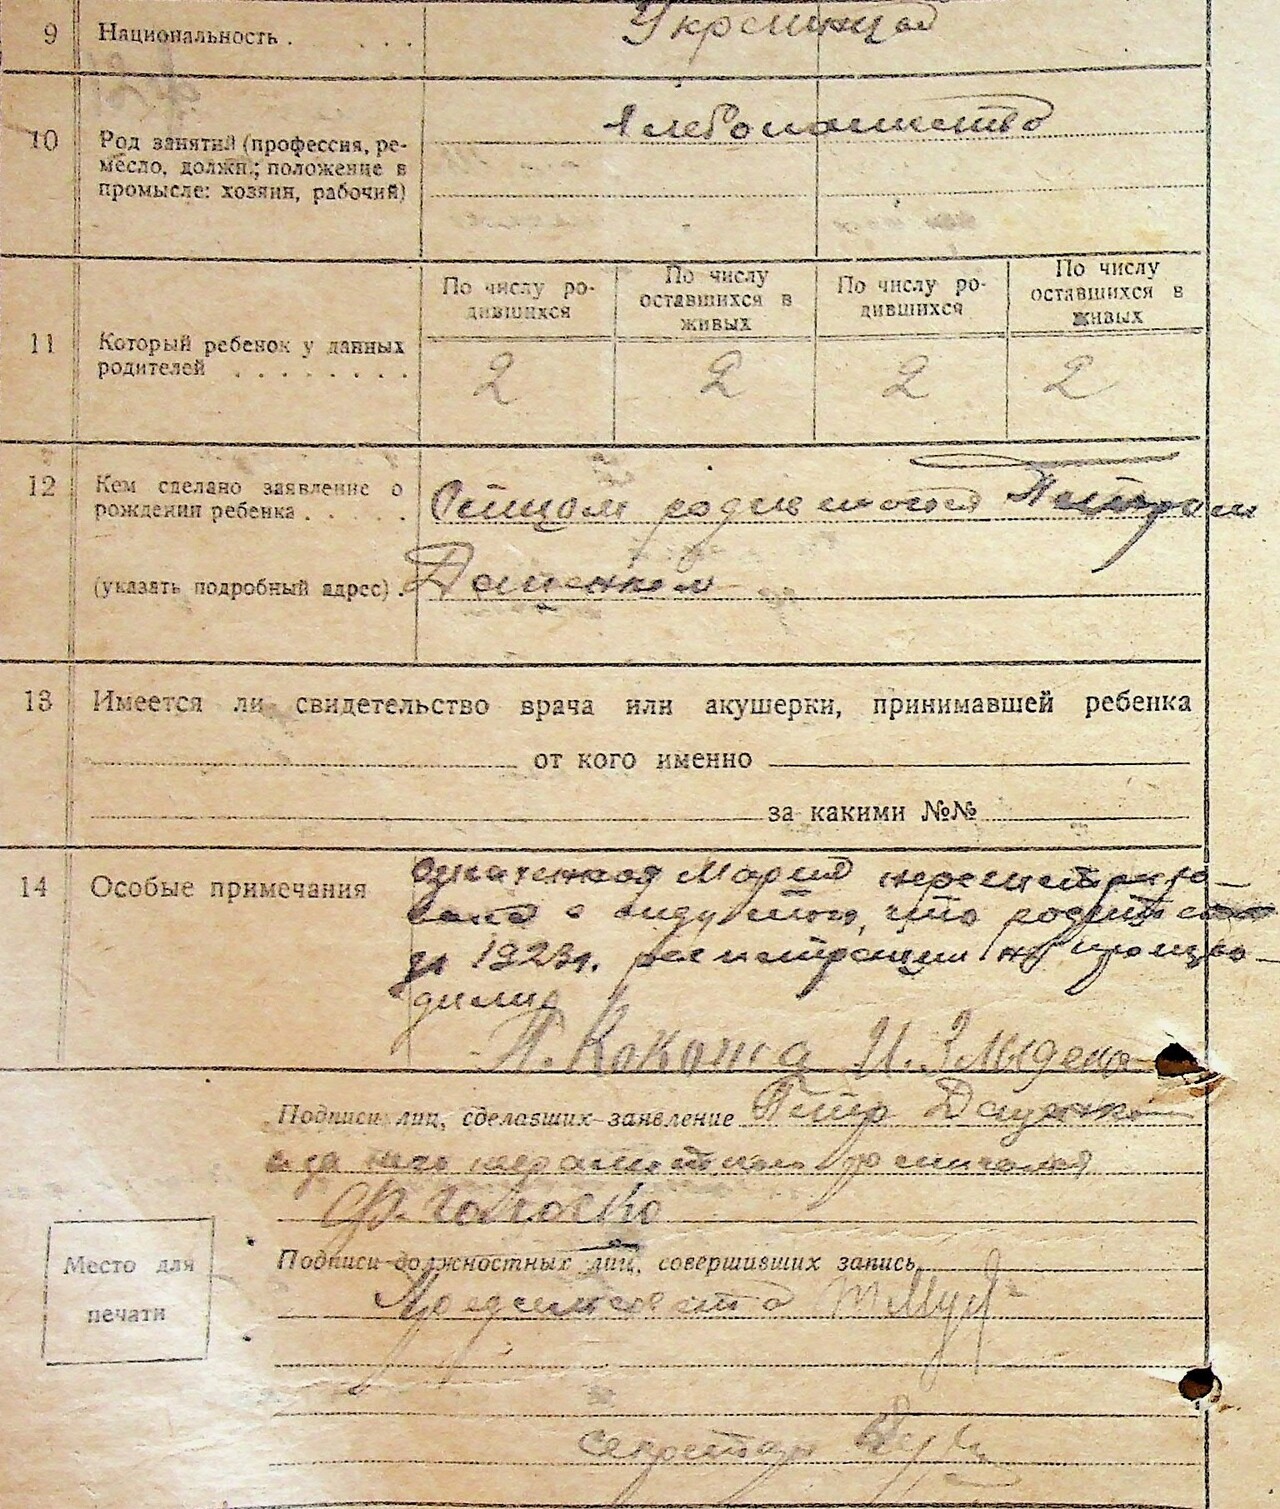 9 Национальность . . . . . Украинцы
10 Род занятий (профессия, ре-
месло, должн.; положение в
промысле: хозяин, рабочий)
Хлебопашество
По числу ро-
дившихся
По числу
оставшихся в
живых
По числу ро-
дившихся
По числу
оставшихся в
живых
11 Который ребенок у данных
родителей . . . . . . . .
2 2 2 2
12 Кем сделано заявление о
рождении ребенка . . . . .
Отцом родившегося Петром
(указать подробный адрес) . Даценком
13 Имеется ли свидетельство врача или акушерки, принимавшей ребенка
от кого именно
за какими №№
14 Особые примечания
Означенная Мария
в виду того, что
до 1923г. регистрации не произво-
дили
И.
Подписи лиц, сделавших заявление Петр Даценко
а за него неграмотного росписался
Подписи должностных лиц, совершивших запись
Предсельсовета
Место для
печати
Секретарь